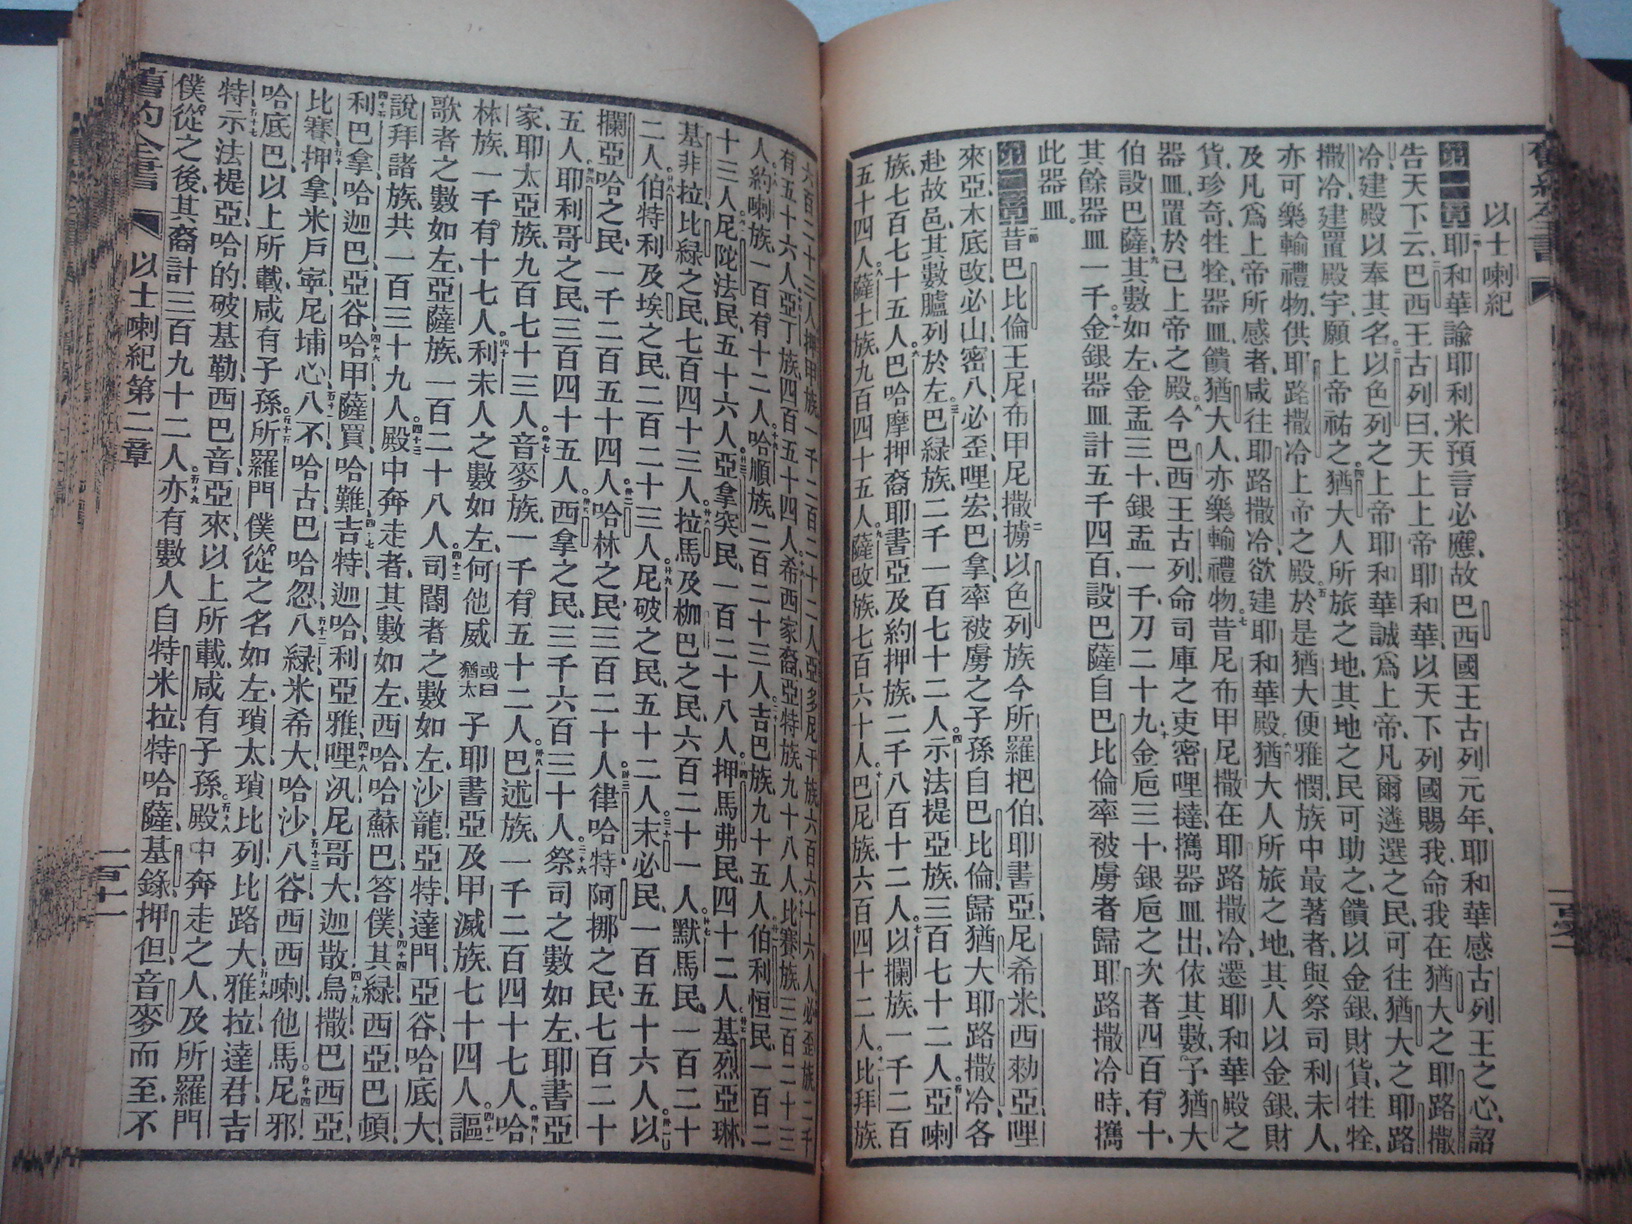 以士喇紀
第一章耶和華諭耶利米預言必應故巴西國王古列元年耶和華感古列王之心詔
告天下云巴西王古列曰天上上帝耶和華以天下列國賜我命我在猶大之耶路撒
冷建殿以奉其名以色列之上帝耶和華誠為上帝凡爾遴選之民可往猶大之耶路
撒冷建置殿宇願上帝祐之猶大人所旅之地其地之民可助之饋以金銀財貨牲牷
亦可樂輸禮物供耶路撒冷上帝之殿於是猶大便雅憫族中最著者與祭司利未人
及凡為上帝所感者咸往耶路撒冷欲建耶和華殿猶大人所旅之地其人以金銀財
貨珍奇牲牷器皿饋猶大人亦樂輸禮物昔尼布甲尼撒在耶路撒冷遷耶和華殿之
器皿置於己上帝之殿今巴西王古列命司庫之吏密哩撻攜器皿出依其數予猶大
伯設巴薩其數如左金盂三十銀盂一千刀二十九金卮三十銀卮之次者四百有十
其餘器皿一千金銀器皿計五千四百設巴薩自巴比倫率被虜者歸耶路撒冷時攜
此器皿
第二章昔巴比倫王尼布甲尼撒擄以色列族今所羅把伯耶書亞尼希米西勑亞哩
來亞木底改必山密八必歪哩宏巴拿率被虜之子孫自巴比倫歸猶大耶路撒冷各
赴故邑其數臚列於左巴綠族二千一百七十二人示法提亞族三百七十二人亞喇
族七百七十五人巴哈摩押裔耶書亞及約押族二千八百十二人以攔族一千二百
五十四人薩土族九百四十五人薩改族七百六十人巴尼族六百四十二人比拜族
六百二十三人押甲族一千二百二十二人亞多尼干族六百六十六人必歪族二千
有五十六人亞丁族四百五十四人希西家裔亞特族九十八人比賽族三百二十三
人約喇族一百有十二人哈順族二百二十三人吉巴族九十五人伯利恒民一百二
十三人尼陀法民五十六人亞拿突民一百二十八人押馬弗民四十二人基烈亞琳
基非拉比綠之民七百四十三人拉馬及枷巴之民六百二十一人默馬民一百二十
二人伯特利及埃之民二百二十三人尼破之民五十二人末必民一百五十六人以
攔亞哈之民一千二百五十四人哈林之民三百二十人律哈特阿挪之民七百二十
五人耶利哥之民三百四十五人西拿之民三千六百三十人祭司之數如左耶書亞
家耶太亞族九百七十三人音麥族一千有五十二人巴述族一千二百四十七人哈
林族一千有十七人利未人之數如左何他威或曰猶太子耶書亞及甲滅族七十四人謳
歌者之數如左亞薩族一百二十八人司閽者之數如左沙龍亞特達門亞谷哈底大
說拜諸族共一百三十九人殿中奔走者其數如左西哈哈蘇巴答僕其綠西亞巴頓
利巴拿哈迦巴亞谷哈甲薩買哈難吉特迦哈利亞雅哩汛尼哥大迦散烏撒巴西亞
比賽押拿米戶寧尼埔心八不哈古巴哈忽八綠米希大哈沙八谷西西喇他馬尼邪
哈底巴以上所載咸有子孫所羅門僕從之名如左瑣太瑣比列比路大雅拉達君吉
特示法提亞哈的破基勒西巴音亞來以上所載咸有子孫殿中奔走之人及所羅門
僕從之後其裔計三百九十二人亦有數人自特米拉特哈薩基錄押但音麥而至不
舊約全書 以士喇紀第二章 一百十一